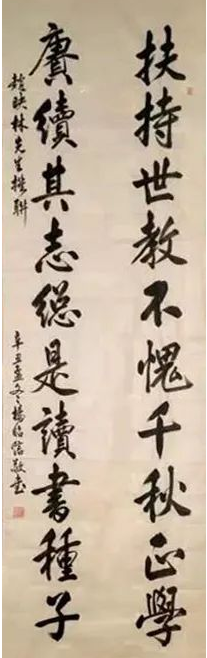 扶持世教不愧千秋正學
賡續其志總是讀書種子
趙映林先生撰聯
辛丑孟冬楊